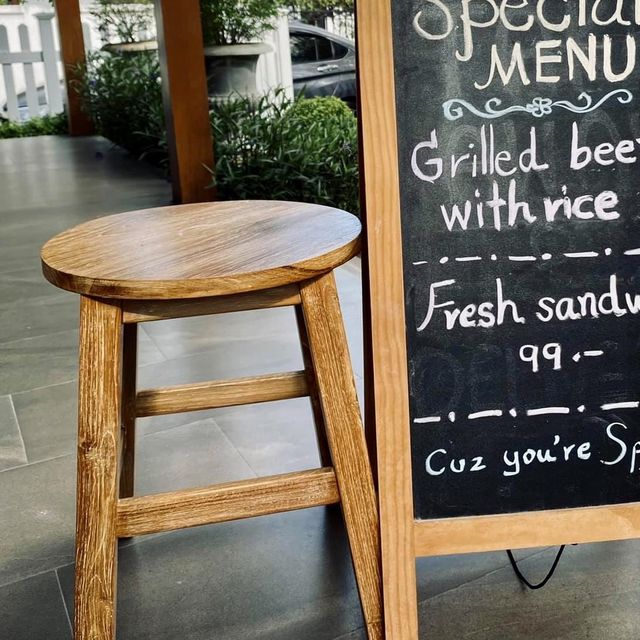 Special
MENU
Grilled beef
with rice
Fresh sandw
99.-
Cuz you're Sp